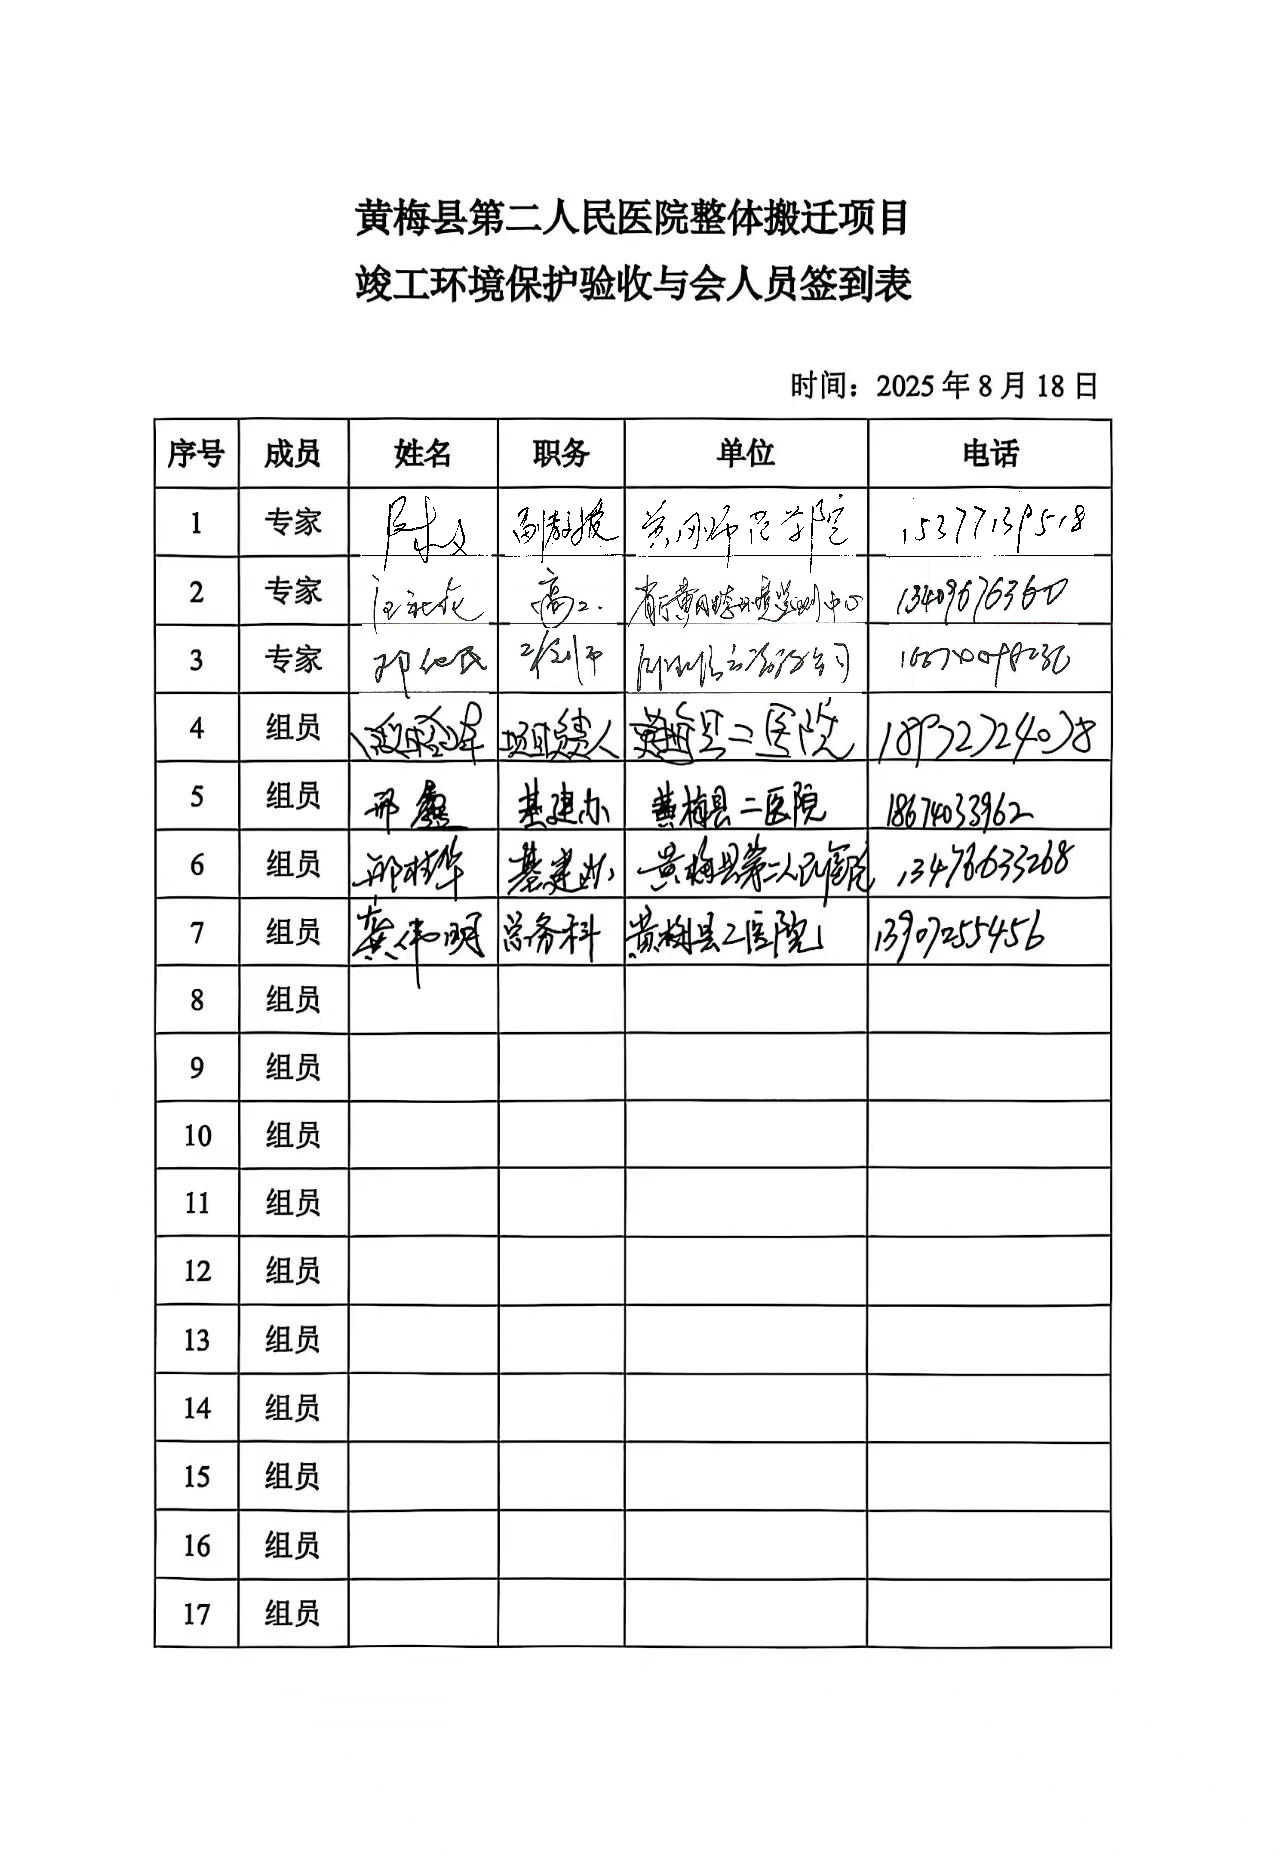 黄梅县第二人民医院整体搬迁项目
竣工环境保护验收与会人员签到表
时间：2025年8月18日
序号 成员 姓名 职务 单位 电话
1 专家 副教授 黄冈师范学院 15377139518
2 专家 高工. 13409676360
3 专家 工程师
4 组员 项目负责人 黄梅县二医院
5 组员 邢鑫 基建办 黄梅县二医院 18674033962
6 组员 基建办 黄梅县第二人民医院 13476633268
7 组员 龚伟明 总务科 黄梅县二医院 13907255456
8 组员
9 组员
10 组员
11 组员
12 组员
13 组员
14 组员
15 组员
16 组员
17 组员